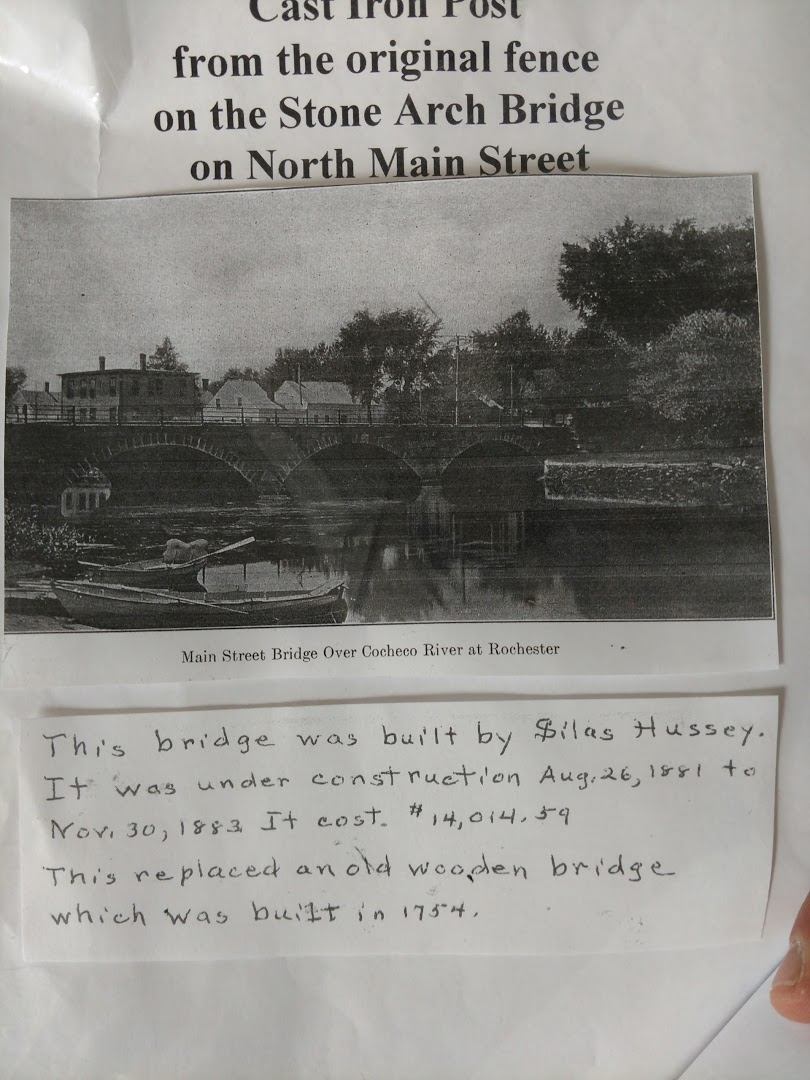 Cast Iron Post
from the original fence
on the Stone Arch Bridge
on North Main Street
Main Street Bridge Over Cocheco River at Rochester
This bridge was built by Silas Hussey.
It was under construction Aug. 26, 1881 to
Nov. 30, 1883 It cost. #14,014.59
This replaced an old wooden bridge
which was built in 1754.